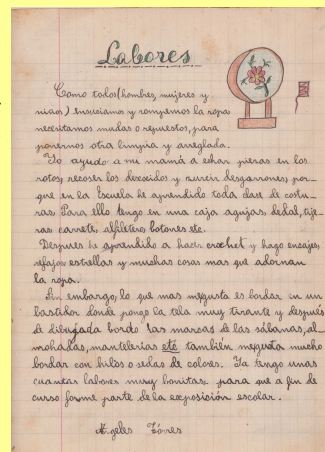 Labores
Como todos (hombres, mujeres y
niños) ensuciamos y rompemos la ropa
necesitamos mudas o repuestos, para
ponernos otra limpia y arreglada.
Yo ayudo a mi mamá a echar piezas en los
rotos, recoser los descosidos y zurcir desgarrones, por-
que en la Escuela he aprendido toda clase de costu-
ras. Para ello tengo en una caja agujas, dedal, tije-
ras carrete, alfiletero botones etc.
Despues he aprendido a hacer crochet y hago encajes,
estrellas y muchas cosas mas que adornan
la ropa.
Sin embargo, lo que mas me gusta es bordar en un
bastidor donde pongo la tela muy tirante y después
de dibujada bordo las marcas de las sábanas, al-
mohadas, mantelerias etc también me gusta mucho
bordar con hilos o sedas de colores. Ya tengo unas
cuantas labores muy bonitas, para que a fin de
curso forme parte de la exposición escolar.
Angeles Torres